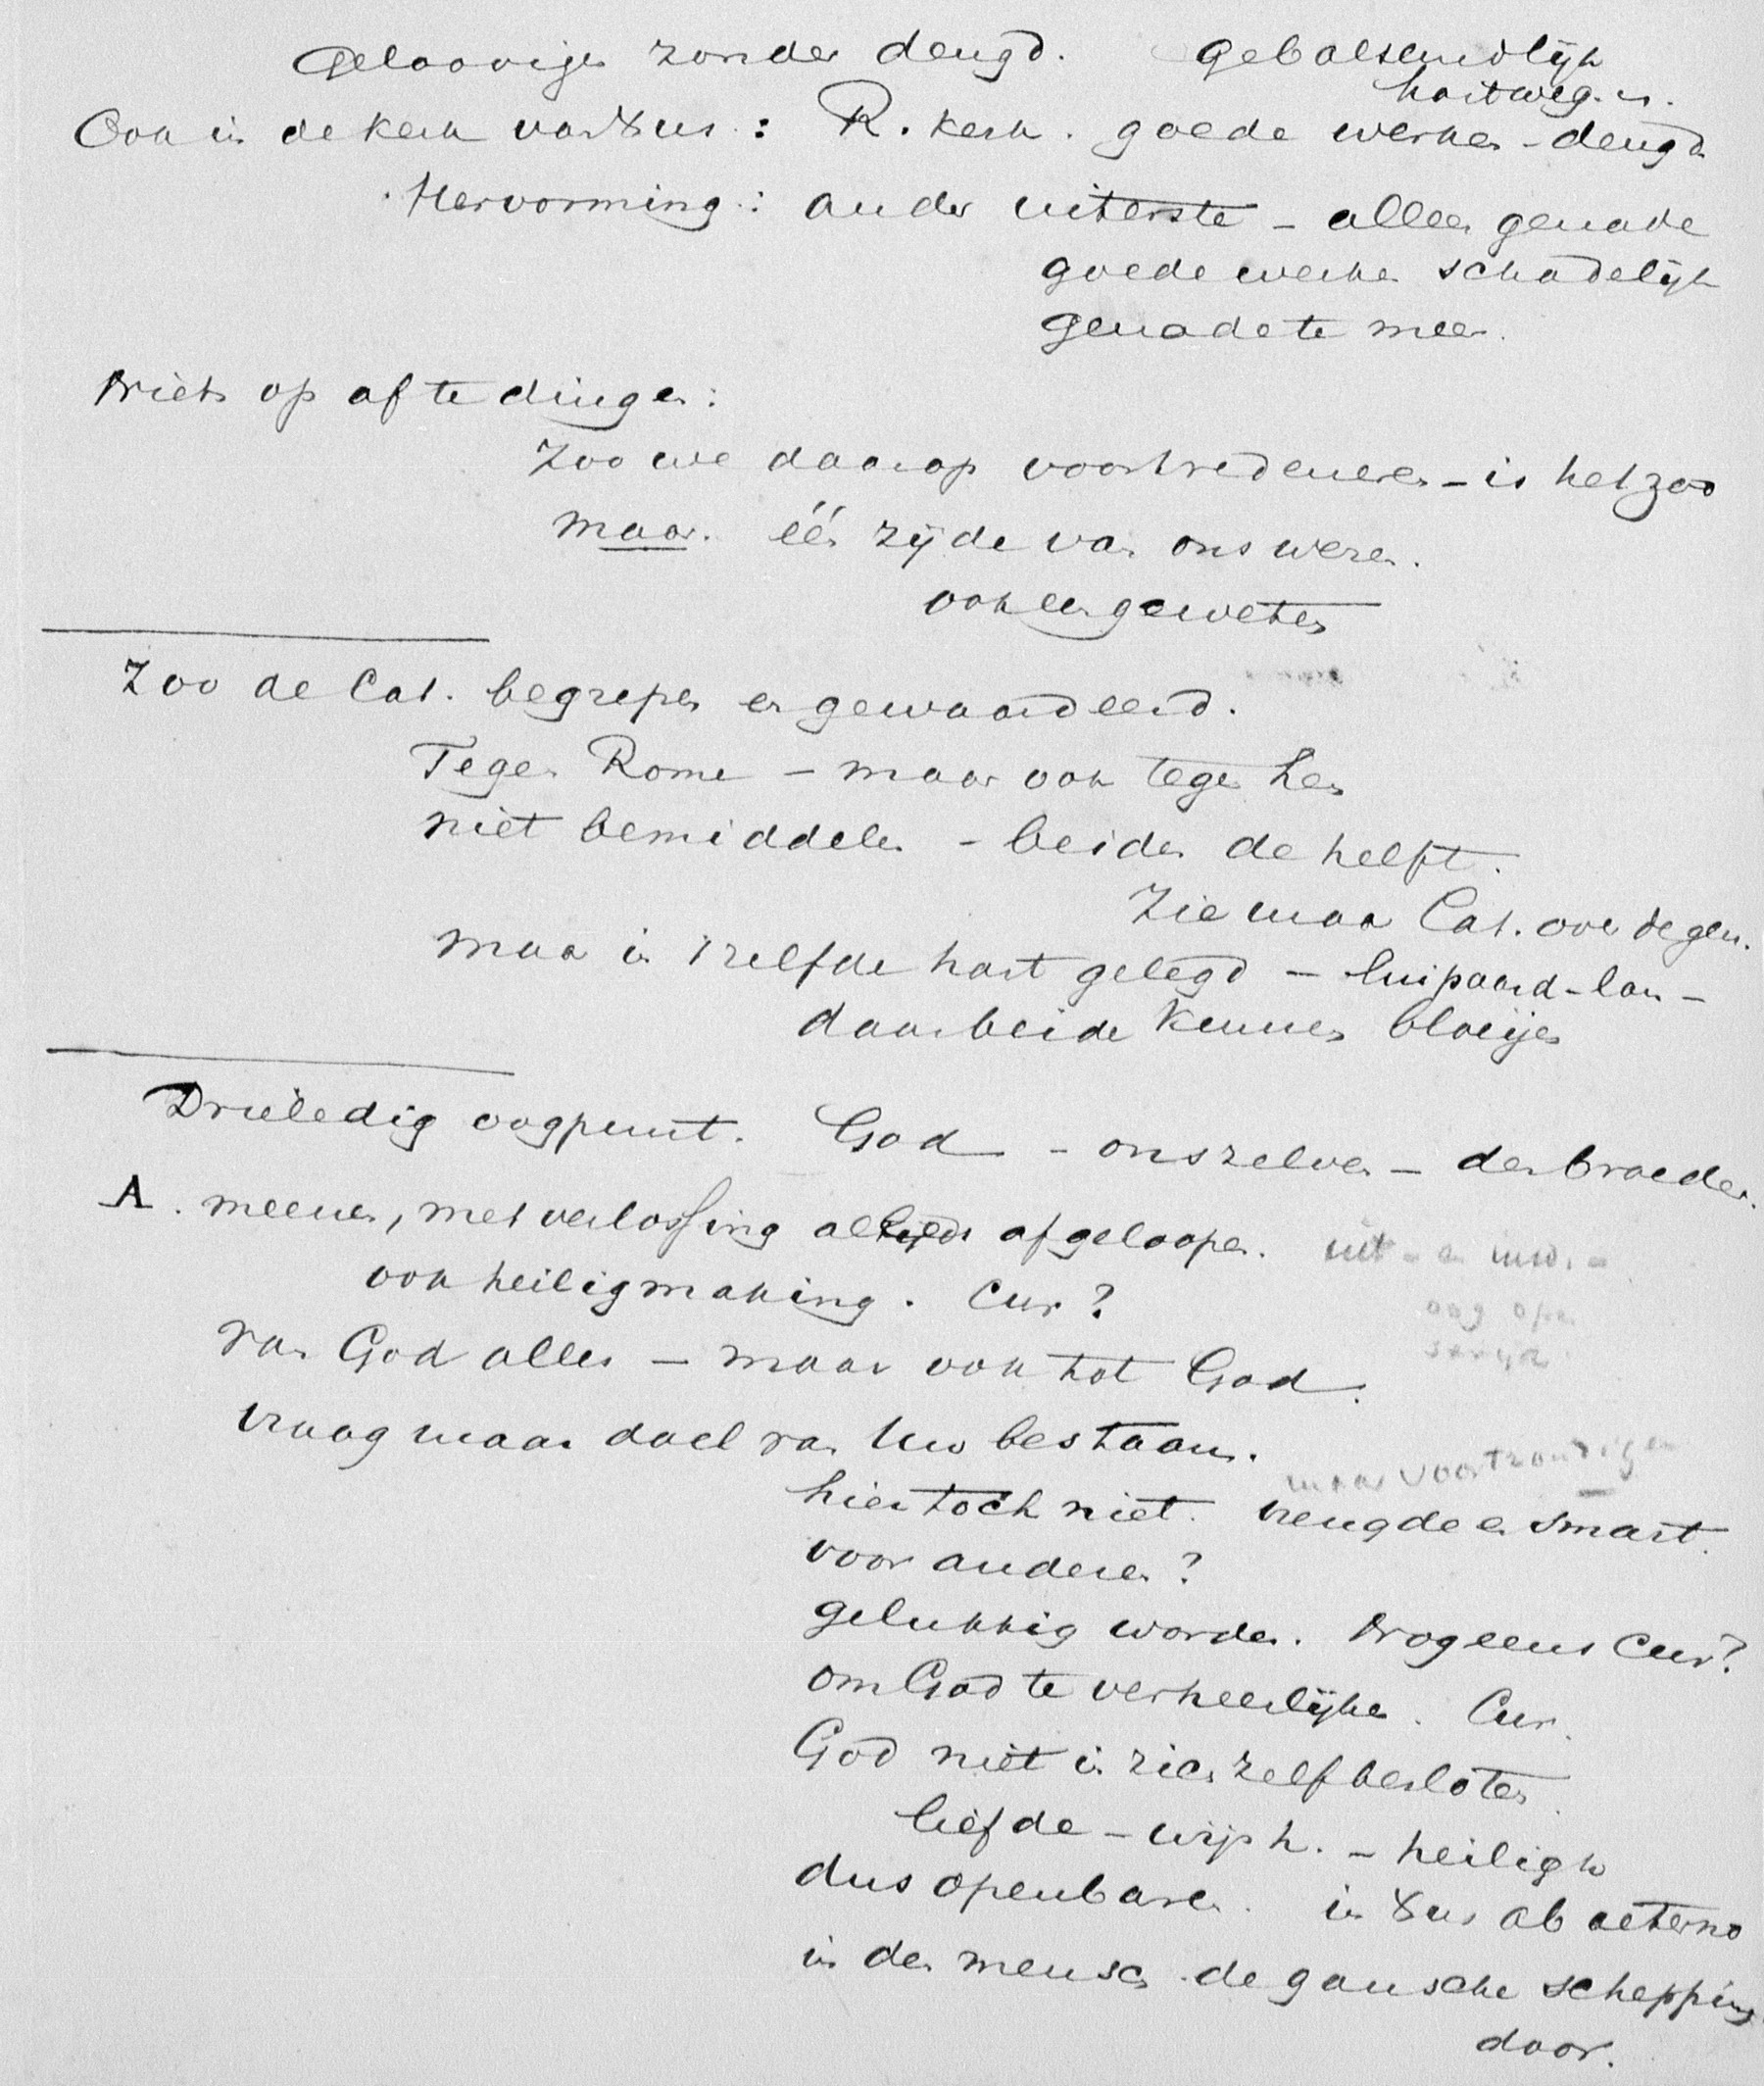 Geloovigen zonder deugd. gebalsemd lijk
hartweg.
Ook in de kerk van Xus: R. kerk. goede werken - deugd
Hervorming: ander uiterste - alleen genade
goede werken schadelijk
genade te meer.
Niets op af te dingen:
Zoo we daarop voortredeneren - is het zoo
maar. één zijde van ons wezen.
ook een geweten
Zoo de Cat. begrepen en gewaardeerd.
Tegen Rome - maar ook tegen hen
niet bemiddelen - beiden de helft.
Zie maar Cat. over de gen.
maar in 't zelfde hart gelegd - luipaard - lam -
daar beide kunnen bloeijen
Drieledig oogpunt. God - onszelven - den broeder.
A. meenen, met verlossing alles afgeloopen. uit - en inw. -
ook heiligmaking. Cur? oog open
van God alles - maar ook tot God.
vraag maar doel van Uw bestaan.
maar voortzondigen
hier toch niet. vreugde en smart.
voor anderen?
gelukkig worden. Nog eens Cur?
om God te verheerlijken. Cur.
God niet in zich zelf besloten
liefde - wijsh. - heiligh
dus openbaren. in Xus ab aeterno
in den mensch de gansche schepping
door.